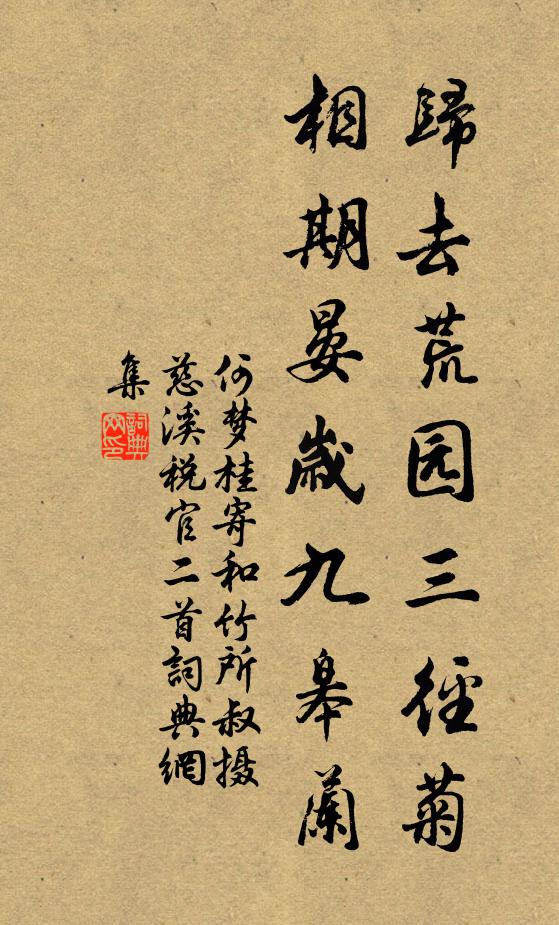 歸去荒园三徑菊
相期晏歲九皋蘭
何梦桂寄和竹所叔摄
慈溪税官二首詞典網
集
詞典網印